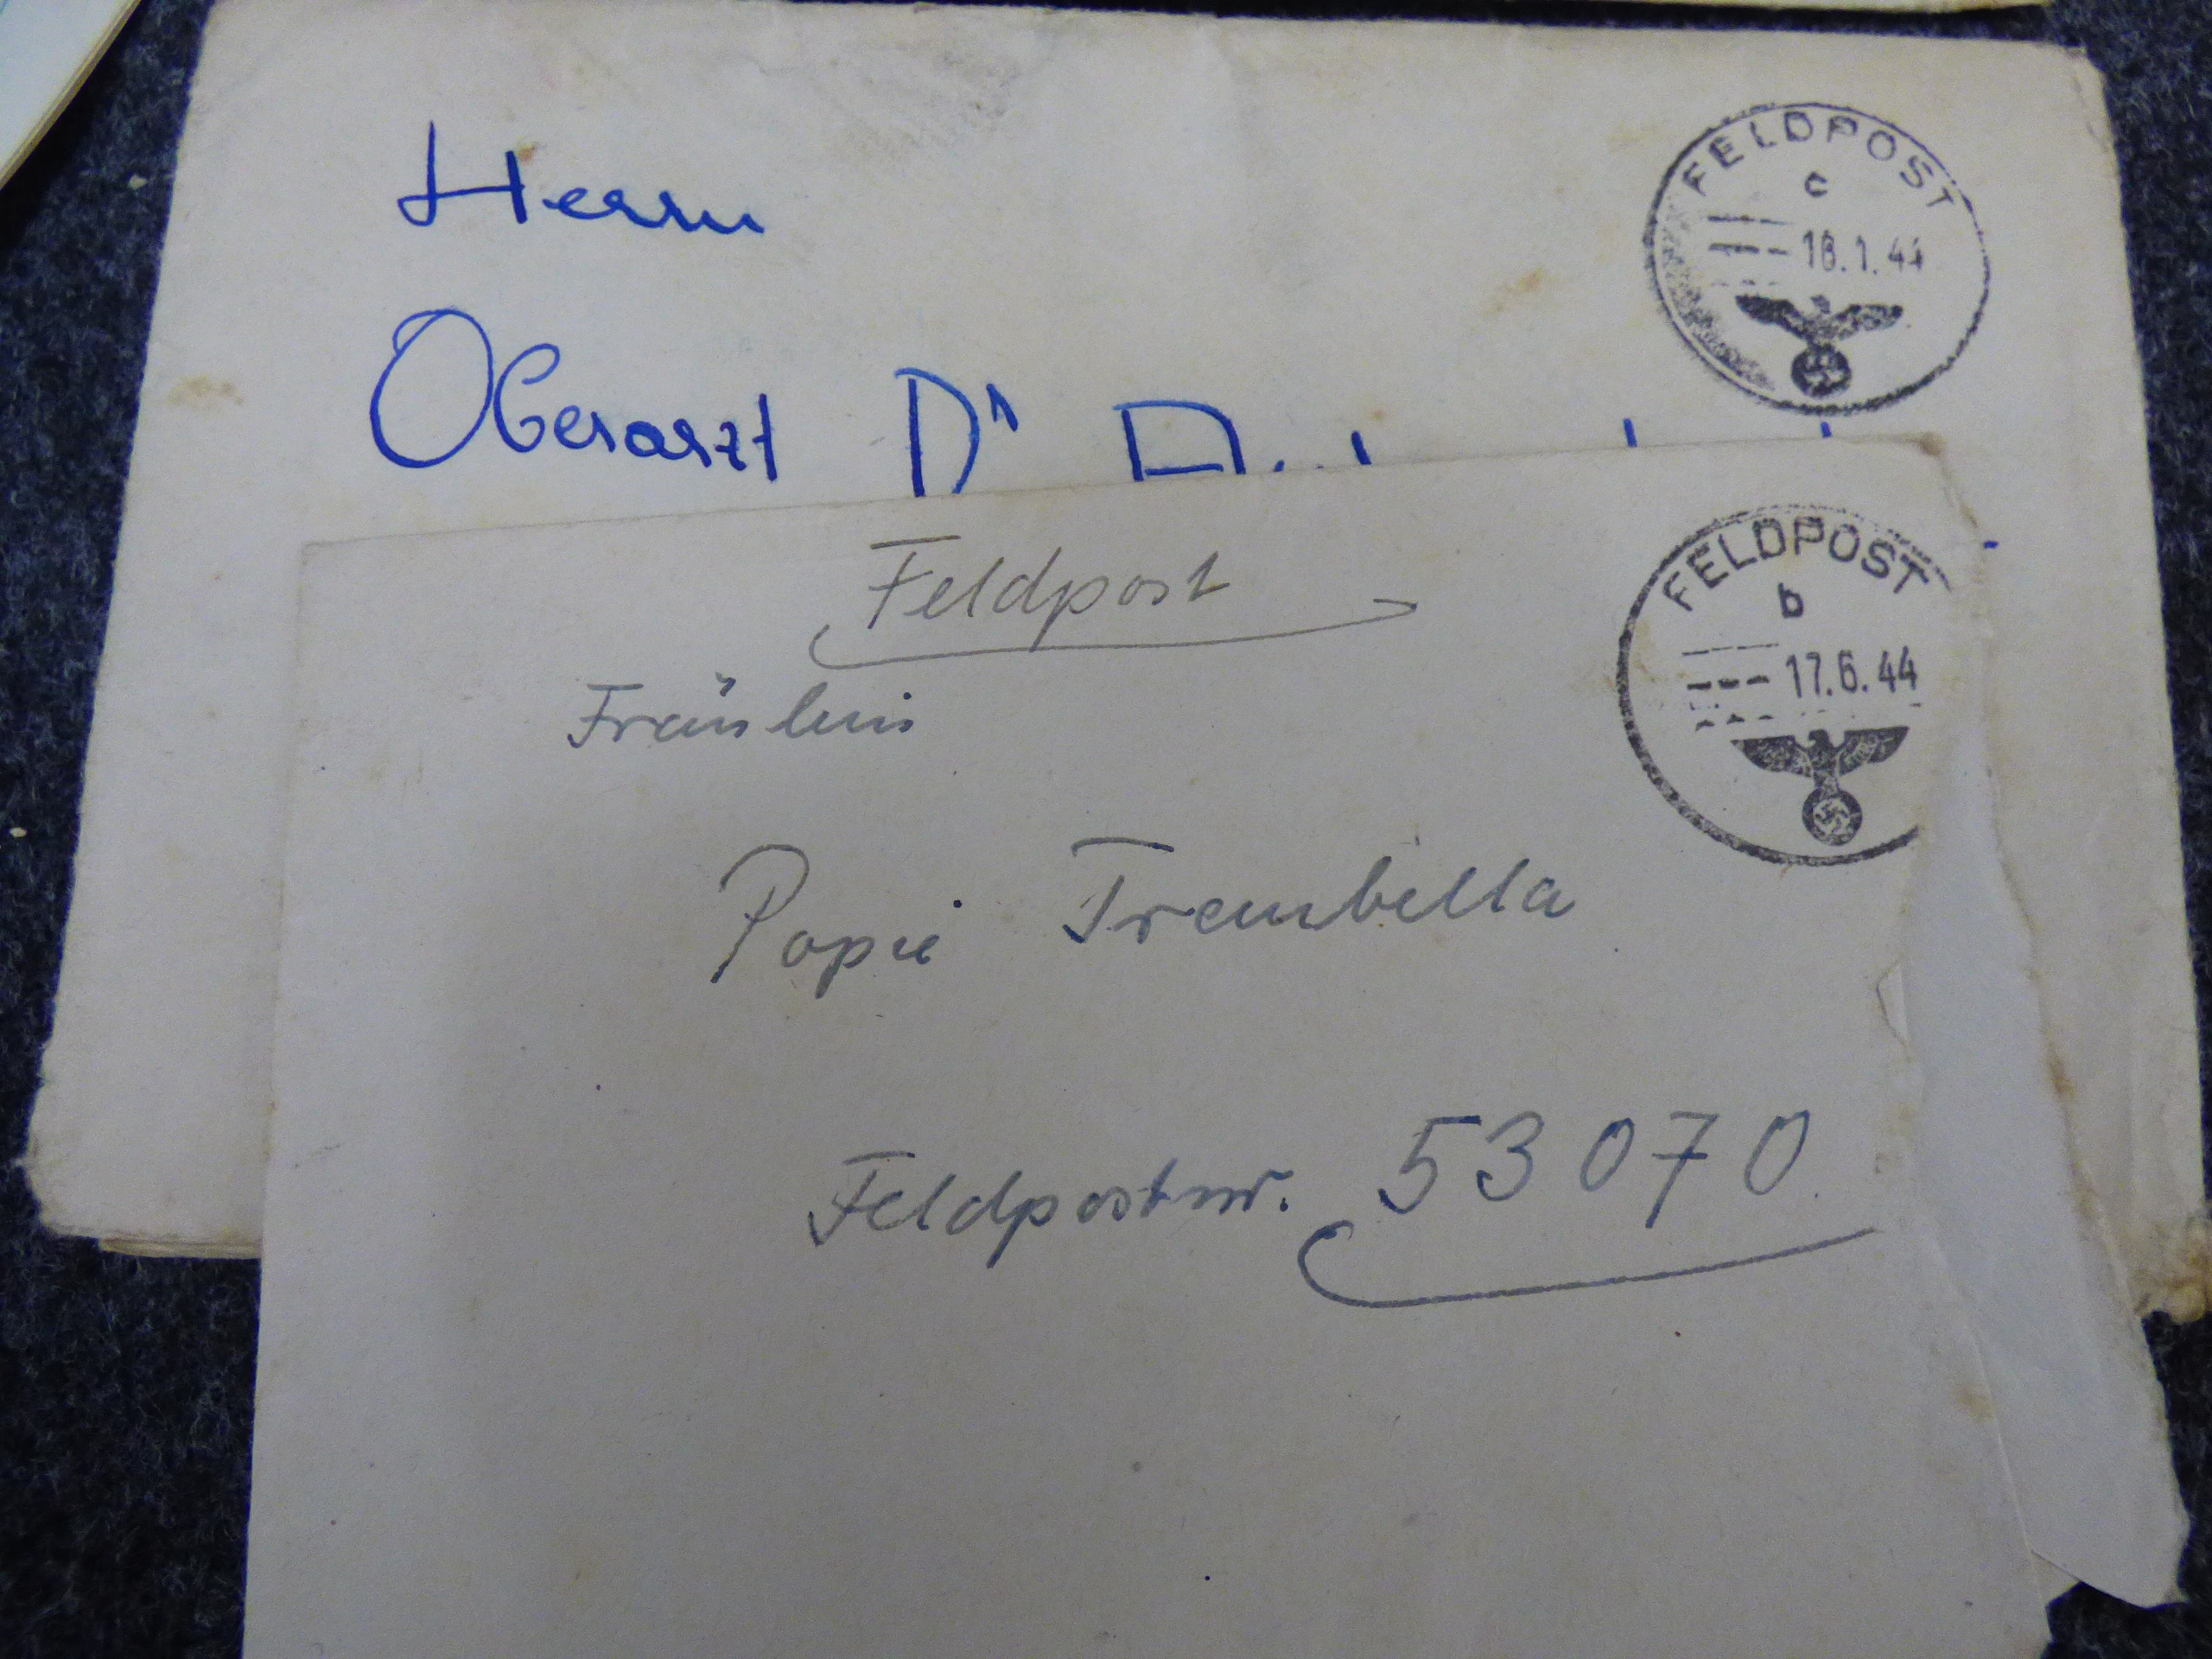 Herrn
Oberarzt Dr
FELDPOST
c
18.1.44
Feldpost
Fräulein
Popi Trembella
Feldpostnr. 53070
FELDPOST
b
17.6.44